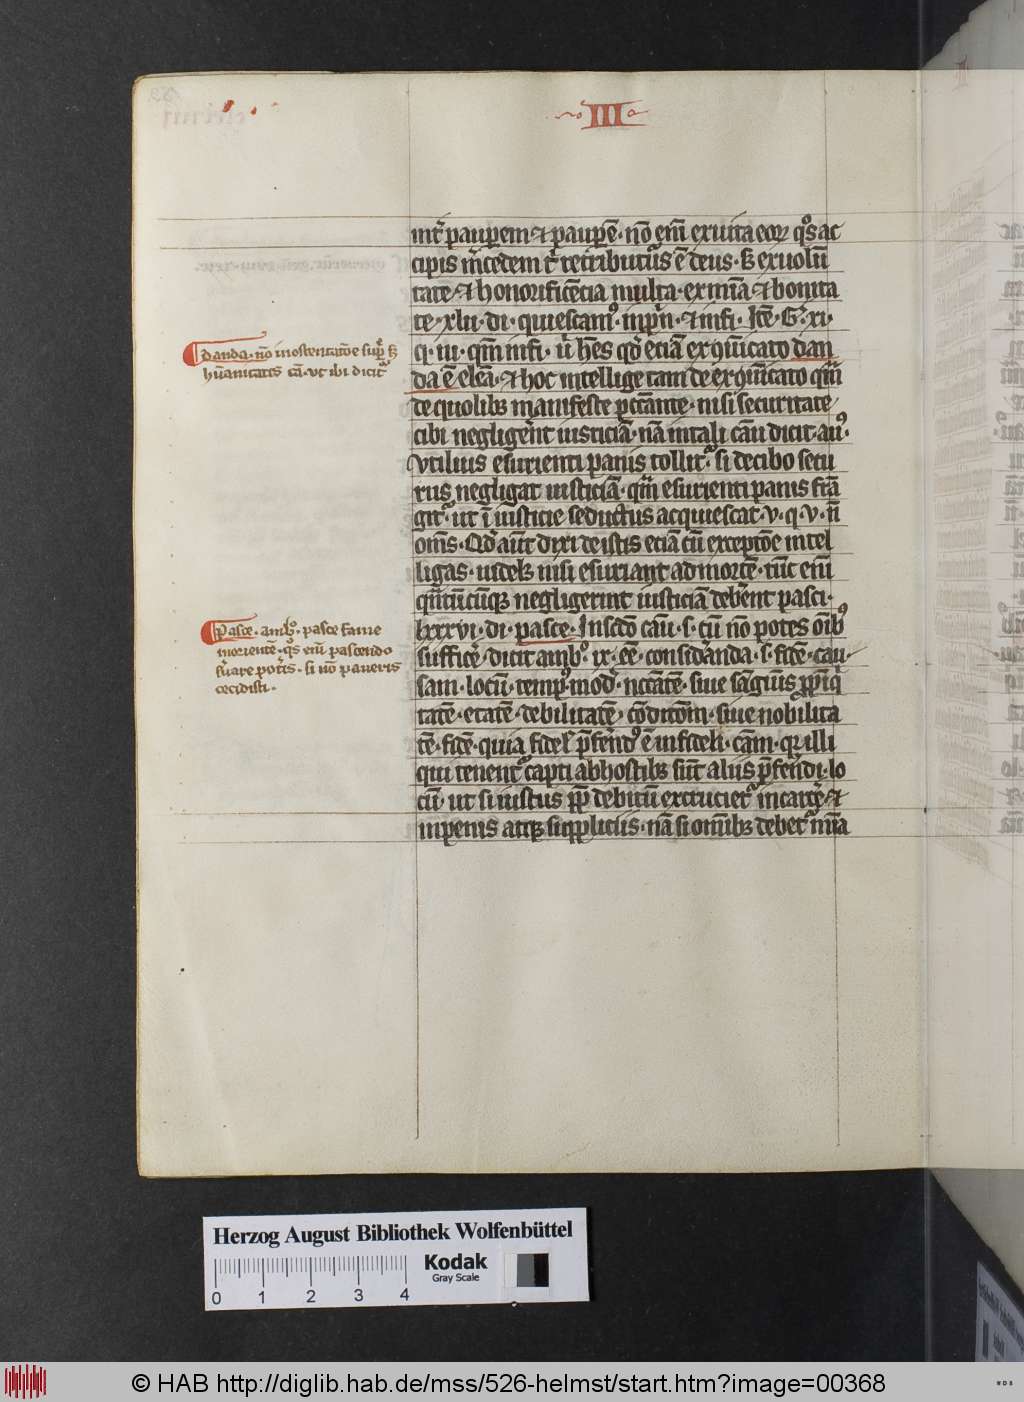 III
int̾ paup̱em ⁊ paup̱ē · nō em̄ ex uita eoꝝ q̊s ac
cipis m̄cedem t̾ retributur᷒ ē deus · sꝫ ex uolū
tate · ⁊ honorificēcia multa · ex mīa ⁊ bonita
te · xlii · di · quiescam᷒ · inp̱n̄ · ⁊ infi · Itē G · xi ·
q · iii · qm̄ infi · u̾ hēs qd̾ eciā exq̄ūicato dan
da ē elēa · ⁊ hoc intellige tam de exq̄ūicato qm̄
de quolibꝫ manifeste pccante · nisi securitate
cibi negligēnt iusticiā · nā in tali cāu dicit au᷒ ·
Vtilius esurienti panis tollit᷑ · si de cibo secu
rus negligat iusticiā · qm̄ esurienti panis frā
git᷑ · ut ī iusticie seductus acquiescat · v · q · v · n̄
om̄s · Qd̾ aūt dixi de istis eciā cū exceptōe intel
ligas · uidelꝫ nisi esuriant ad mortē · tūc em̄
qn̄tūcūqꝫ negligerint iusticiā debēnt pasci ·
lxxxvi · di · pasce · In scdō cāu · s · cū nō potes oībꝫ
sufficē · dicit amb᷒ · ix · eē · considanda · s · fidē · cau
sam · locū · temp᷒ · mod̄ · nccātē · siue sāguīs p̱p̱iq̄
tatē · etatē · debilitatē · cōditōm · siue nobilita
tē · fidē · quia fidel᷒ p̄fend᷒ ē infideli · cām · qꝛ illi
qui tenent᷑ capti ab hostibꝫ sūt aliis p̄fendi · lo
cū · ut si iustus pp̄ debitū excruciet᷑ in carcē · ⁊
in penis atqꝫ suppliciis · nā si omībꝫ debet᷑ mīa
danda · nō in ostentatōe sup̱ · sꝫ
hūanitatis cā · vt ibi dicit᷑
Pasce · amb᷒ · pasce fame
morientē · q̊s em̄ pascendo
s̄uare pot̾is · si nō paueris
occidisti ·
Herzog August Bibliothek Wolfenbüttel
Kodak
Gray Scale
0 1 2 3 4
© HAB http://diglib.hab.de/mss/526-helmst/start.htm?image=00368